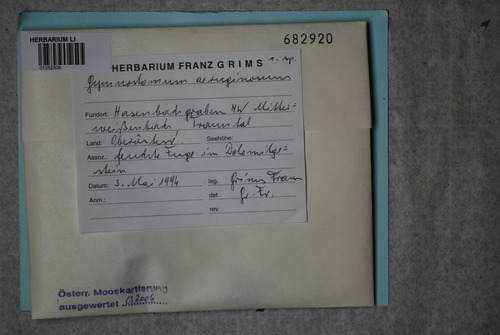 HERBARIUM LI
682920
HERBARIUM FRANZ GRIMS
Gymnostomum aeruginosum
Fundort: Hasenbachgraben NW Mitter=
weißenbach, Trauntal
Land: Oberösterr. Seehöhe:
Assoz.: feuchte Fuge im Dolomitge=
stein
Datum: 3. Mai 1994 leg. Grims Franz
Anm.: det. Gr. Fr.
rev.
Österr. Mooskartierung
ausgewertet 2006